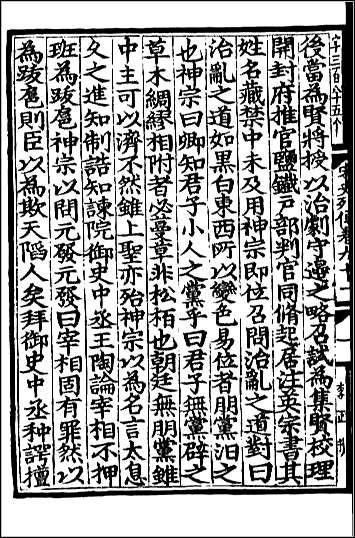 字三百八十五个
宋史列傳卷九十
李正
後當為賢將授以治劇守邊之略召試為集賢校理
開封府推官鹽鐵戶部判官同脩起居注英宗書其
姓名藏禁中未及用神宗即位召問治亂之道對曰
治亂之道如黑白東西所以變色易位者朋黨汨之
也神宗曰卿知君子小人之黨乎曰君子無黨辟之
草木綢繆相附者必蔓草非松柏也朝廷無朋黨雖
中主可以濟不然雖上聖亦殆神宗以為名言太息
久之進知制誥知諫院御史中丞王陶論宰相不押
班為跋扈神宗以問元發元發曰宰相固有罪然以
為跋扈則臣以為欺天陷人矣拜御史中丞种諤擅